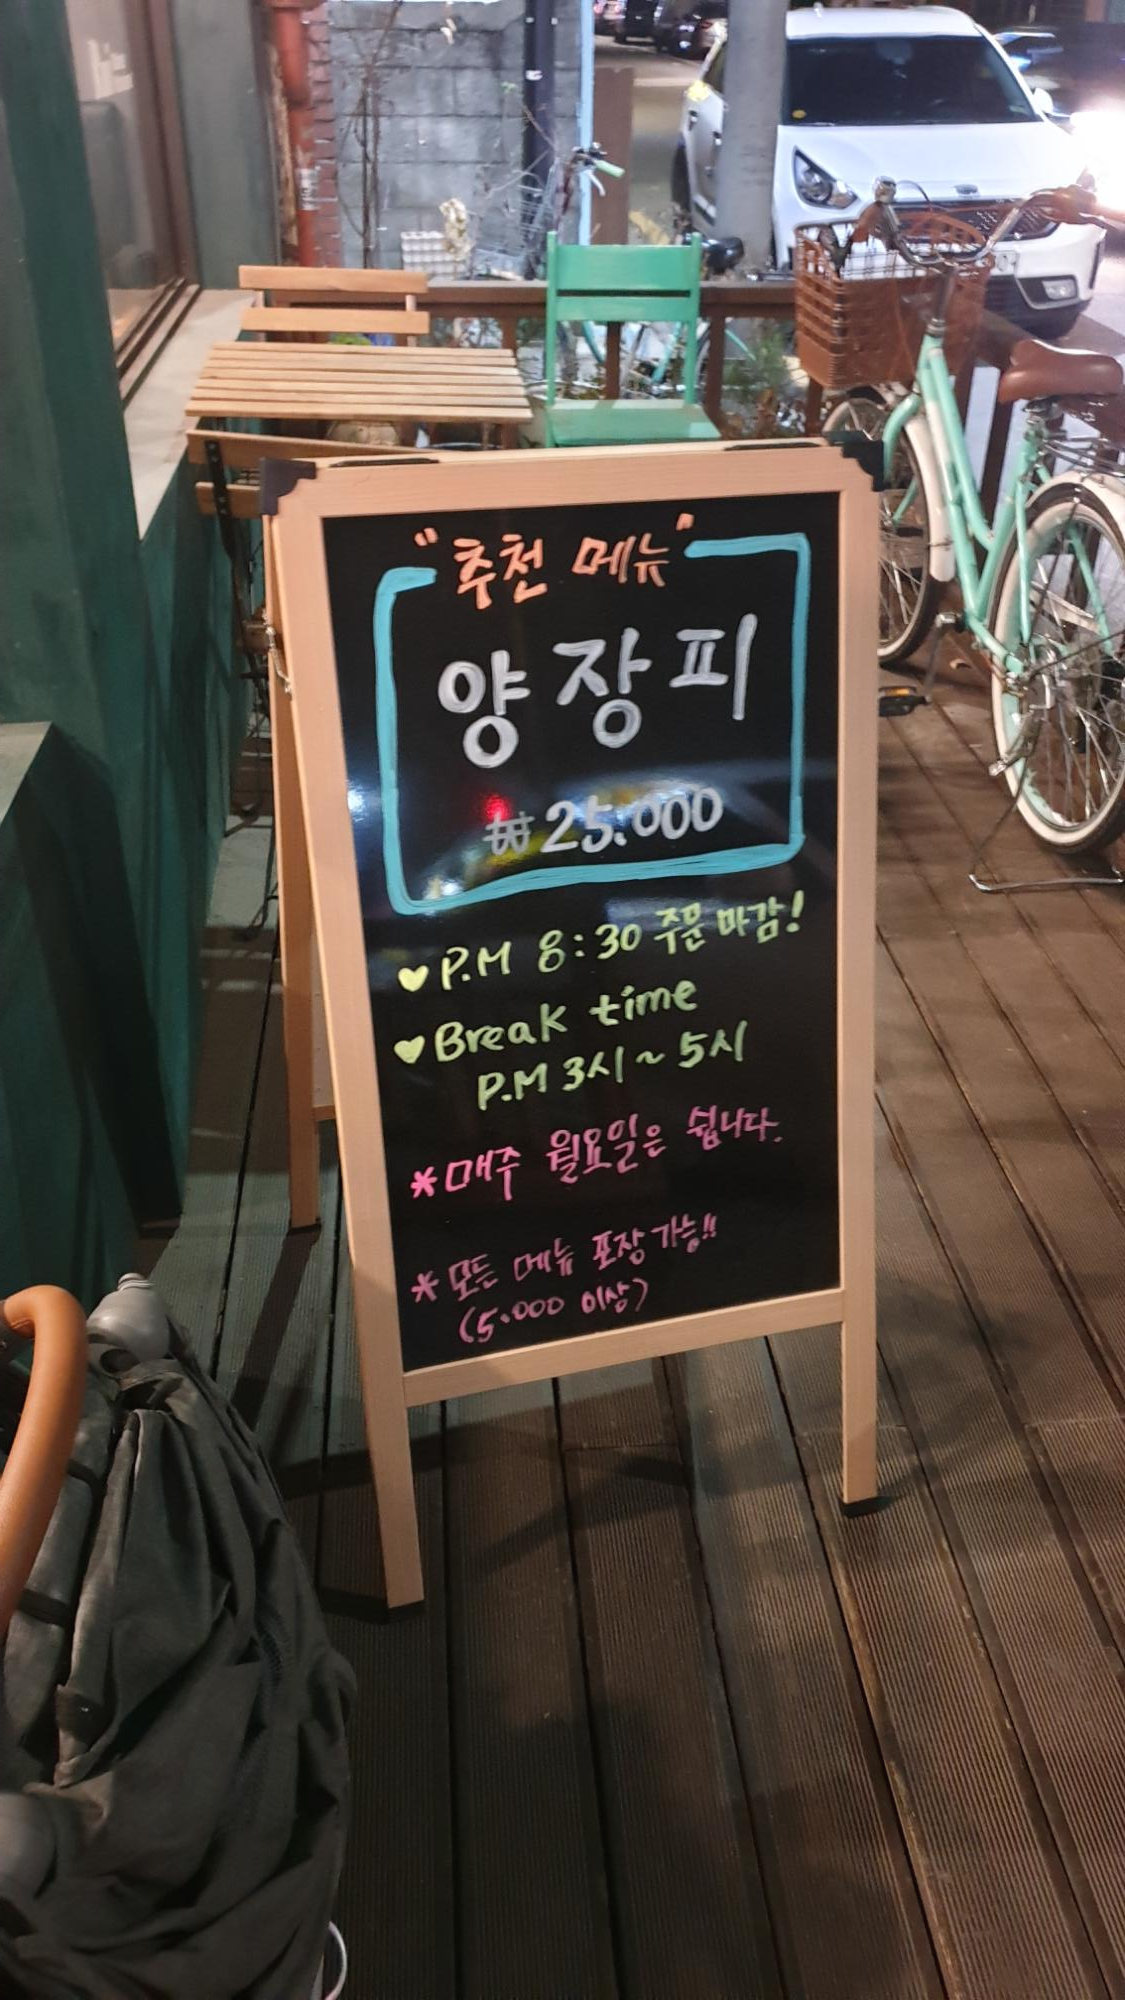 "추천 메뉴"
양장피
₩25.000
♥P.M 8:30 주문 마감!
♥Break time
P.M 3시~5시
*매주 월요일은 쉽니다.
*모든 메뉴 포장가능!!
(5.000 이상)